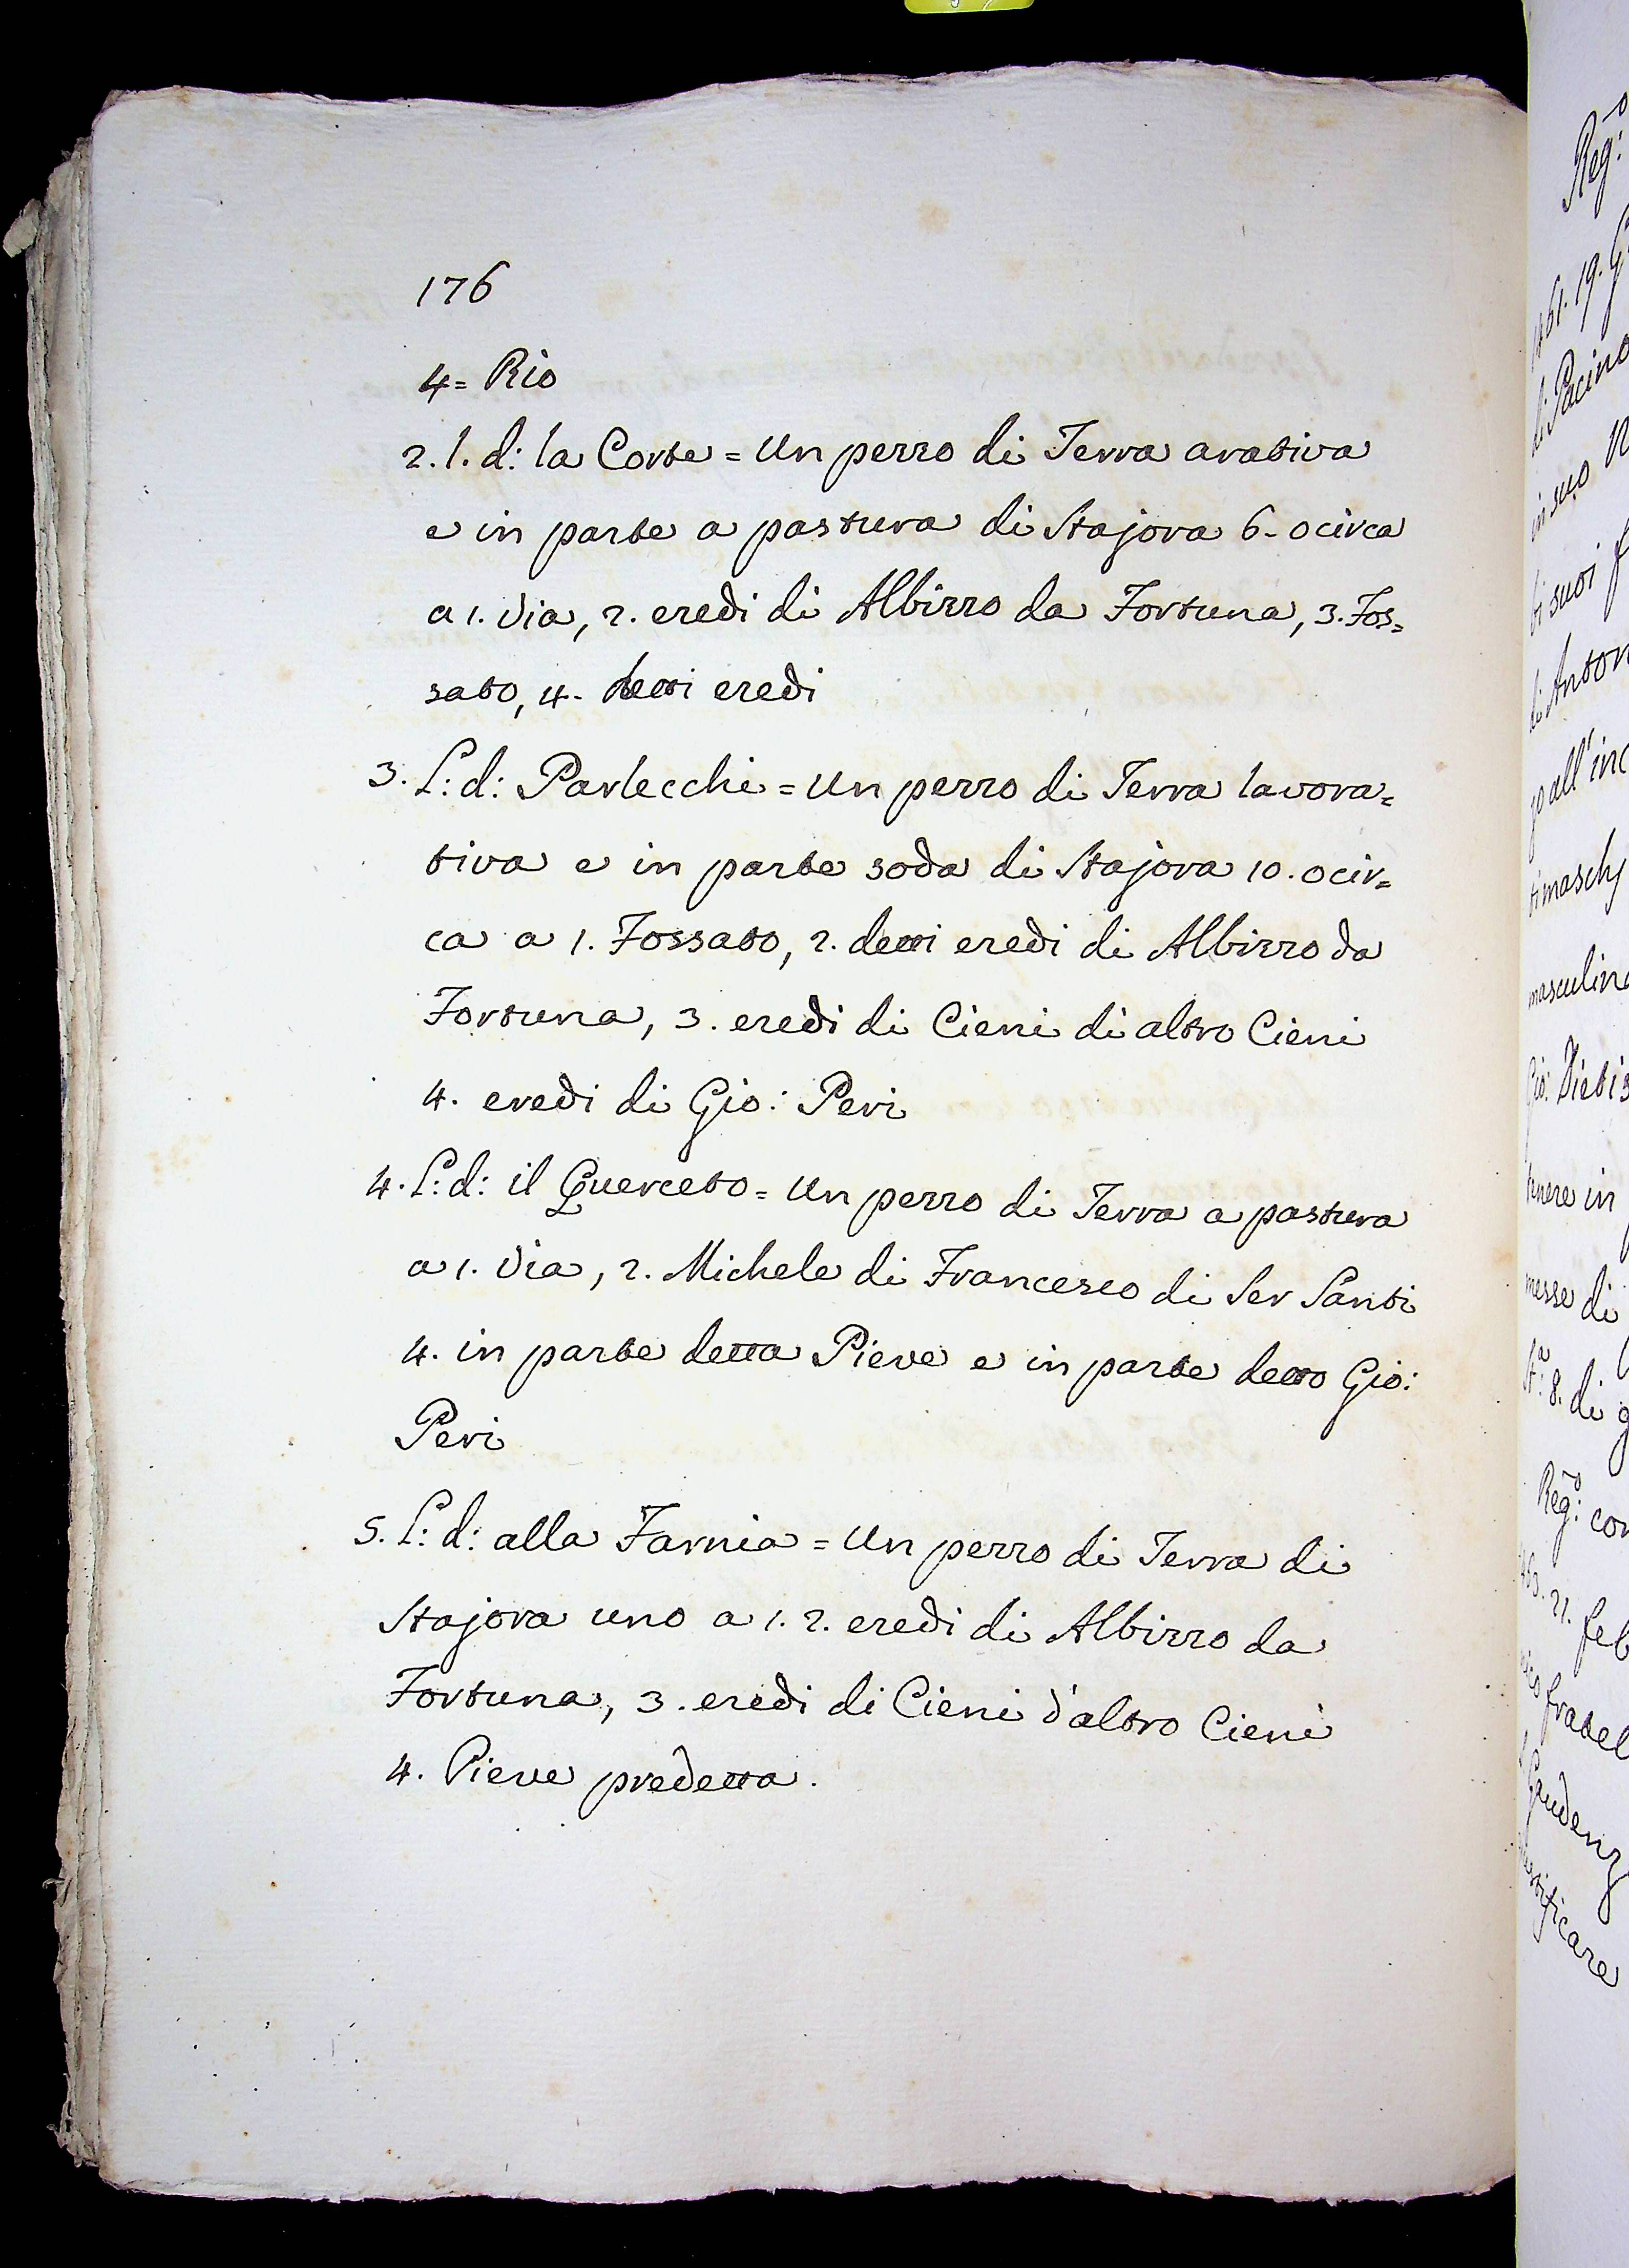 176
4= Rio
2. l. d: la Corte = Un pezzo di Terra arativa
e in parte a pastura di Stajora 6. o circa
a 1. Via, 2. eredi di Albizzo da Fortuna, 3. Fos=
sato, 4. detti eredi
3. L: d: Parlecchi = Un pezzo di Terra lavora=
tiva e in parte soda di Stajora 10. o cir=
ca a 1. Fossato, 2. detti eredi di Albizzo da
Fortuna, 3. eredi di Cieni di altro Cieni
4. eredi di Gio: Peri
4. L: d: il Querceto = Un pezzo di Terra a pastura
a 1. Via, 2. Michele di Francesco di Ser Santi
4. in parte detta Pieve e in parte detto Gio:
Peri
5. L: d: alla Farnia = Un pezzo di Terra di
Stajora uno a 1. 2. eredi di Albizzo da
Fortuna, 3. eredi di Cieni d'altro Cieni
4. Pieve predetta.
Reg:o
19.
di Pacino
in suo
suoi
di Anton
all'inc
maschj
masculin
Gio:
in
di
8. di
Reg:o con
21. feb
fratel
Gaudenz